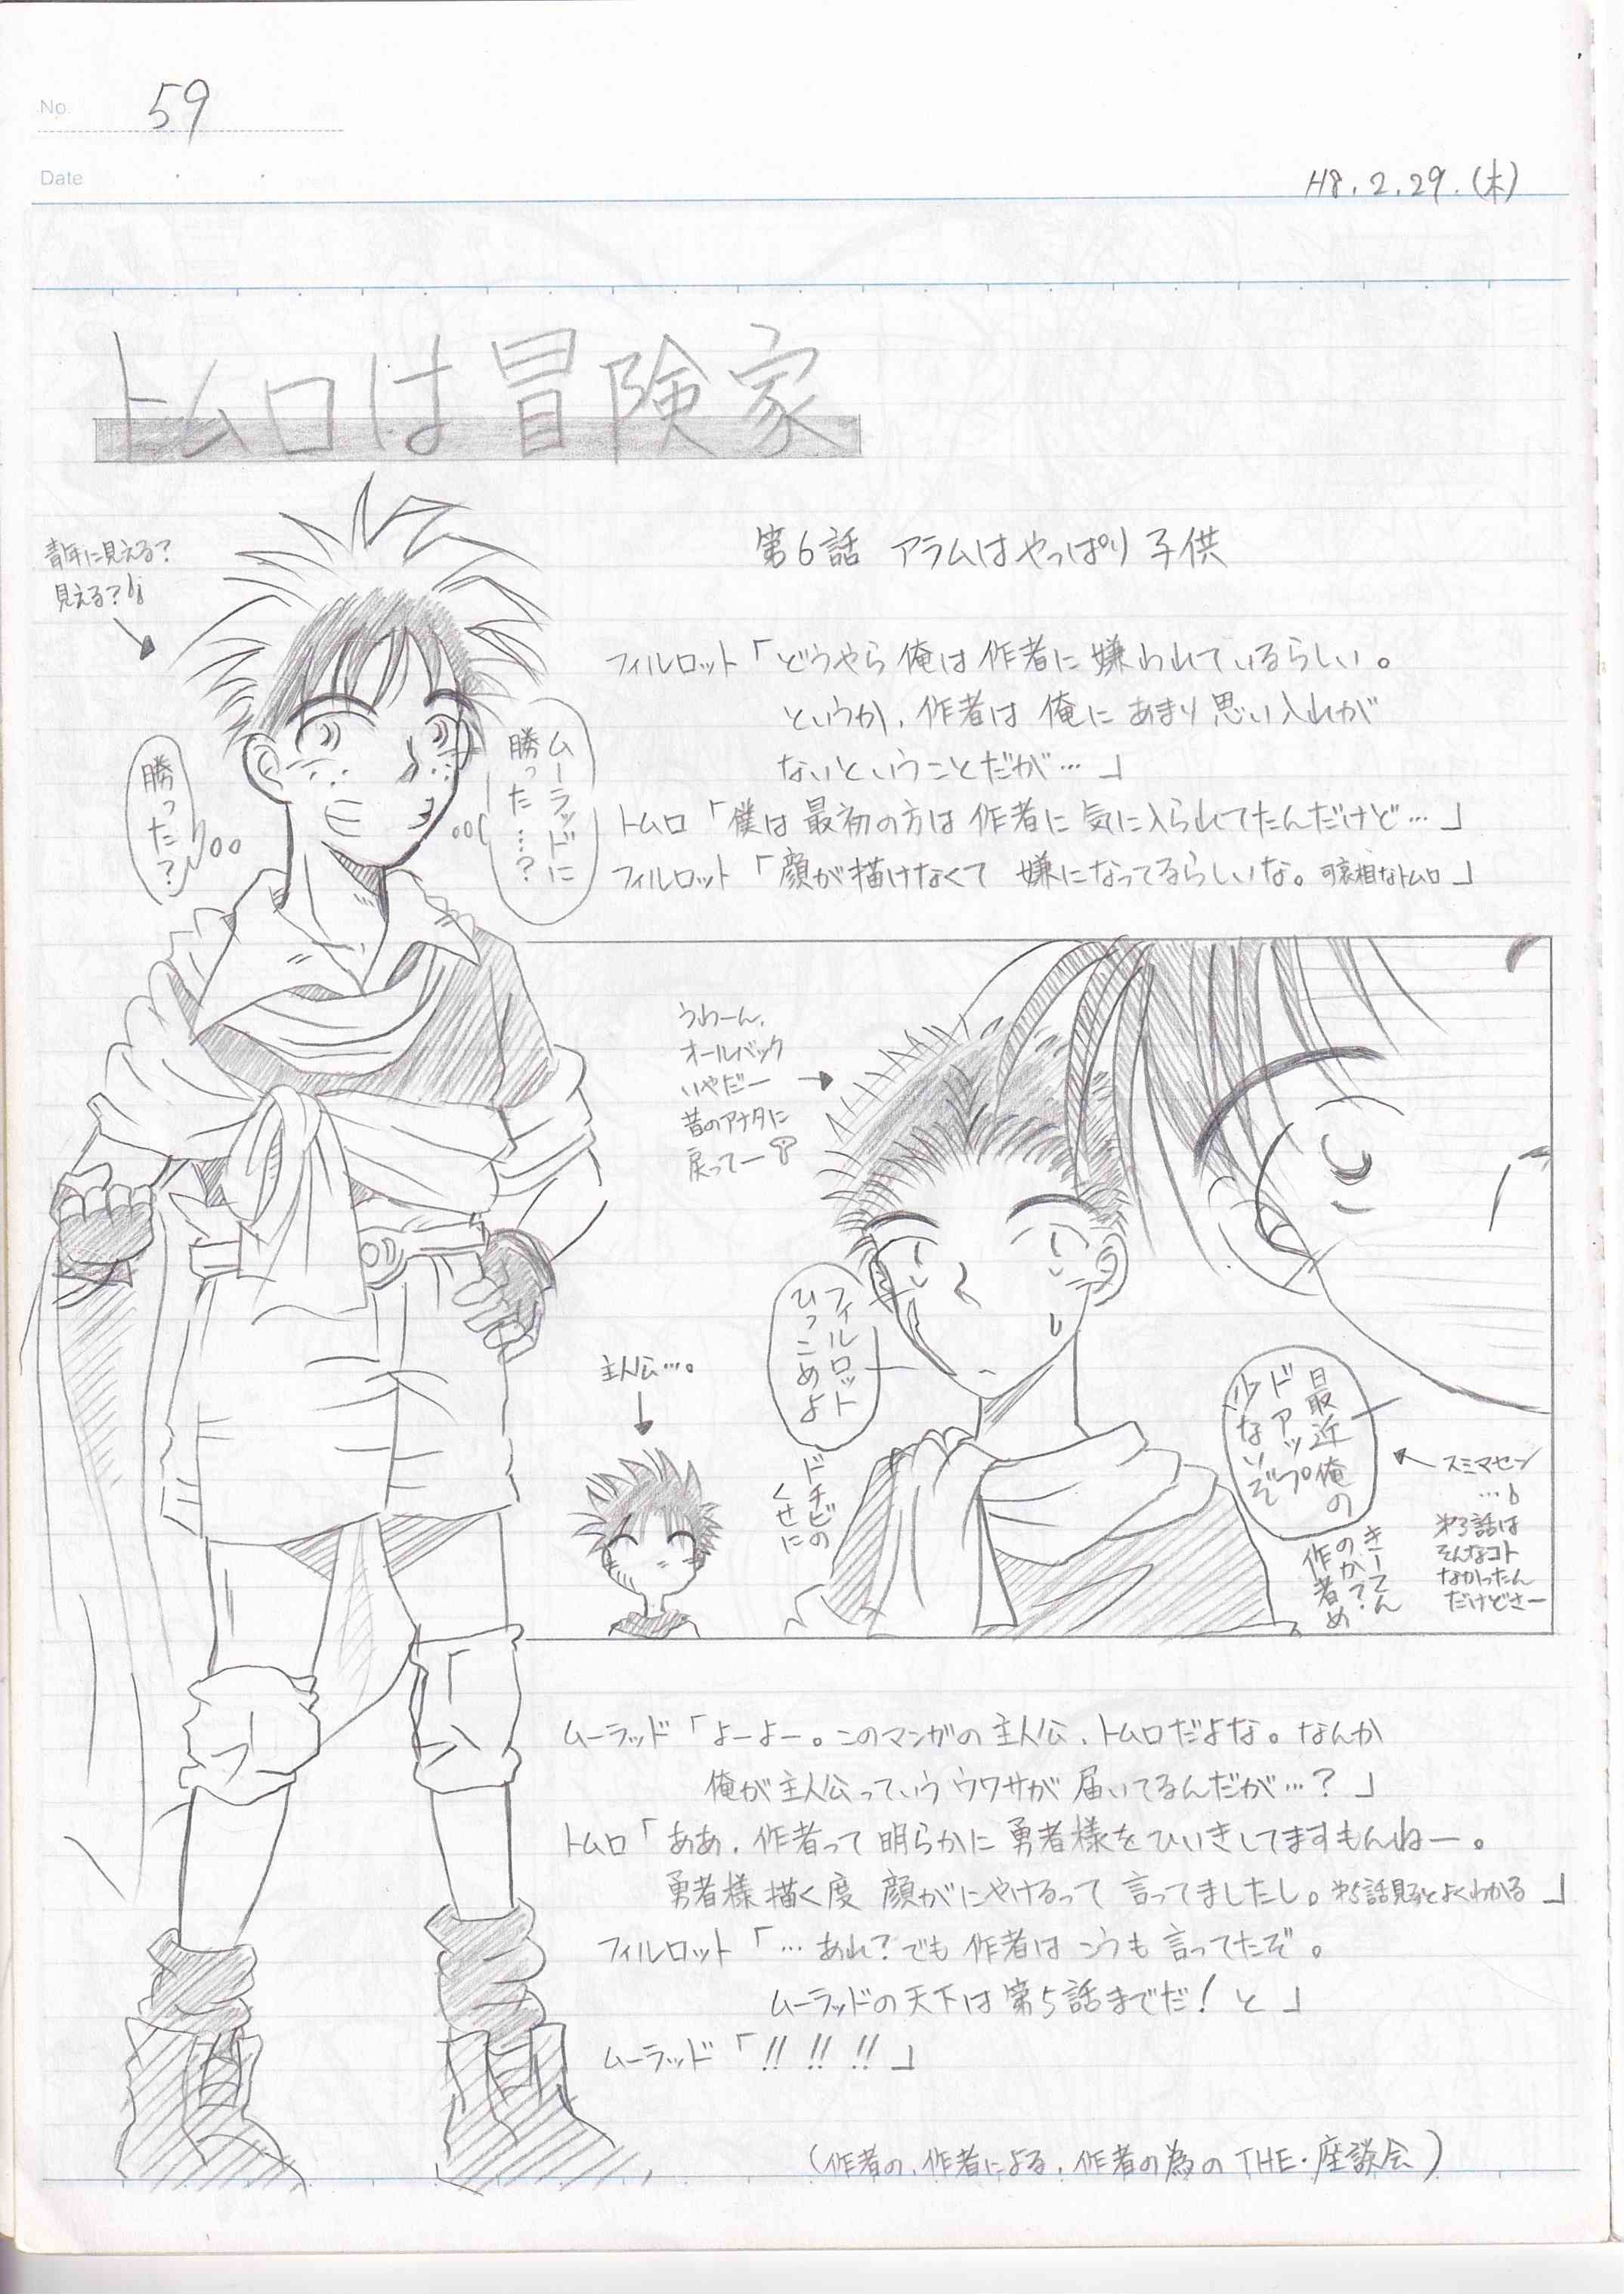 No. 59
Date
H8.2.29.(木)
トムロは冒険家
第6話 アラムはやっぱり子供
青年に見える?
見える?
勝った?
ムーラッドに
勝った…?
フィルロット「どうやら俺は作者に嫌われているらしい。
というか、作者は俺にあまり思い入れが
ないということだが…」
トムロ「僕は最初の方は作者に気に入られてたんだけど…」
フィルロット「顔が描けなくて嫌になってるらしいな。可哀相なトムロ」
うわーん、
オールバック
いやだー
昔のアナタに
戻ってー
フィルロット
ひっこめよ
ドチビの
くせに
主人公…。
最近俺の
ドアップ
少ないぞ
きーてん
のか?
作者め
スミマセン
…
第3話は
そんなコト
なかったん
だけどさー
ムーラッド「よーよー。このマンガの主人公、トムロだよな。なんか
俺が主人公っていうウワサが届いてるんだが…?」
トムロ「ああ、作者って明らかに勇者様をひいきしてますもんねー。
勇者様描く度顔がにやけるって言ってましたし。第5話見るとよくわかる」
フィルロット「…あれ?でも作者はこうも言ってたぞ。
ムーラッドの天下は第5話までだ!と」
ムーラッド「!! !! !!」
(作者の、作者による、作者の為のTHE・座談会)